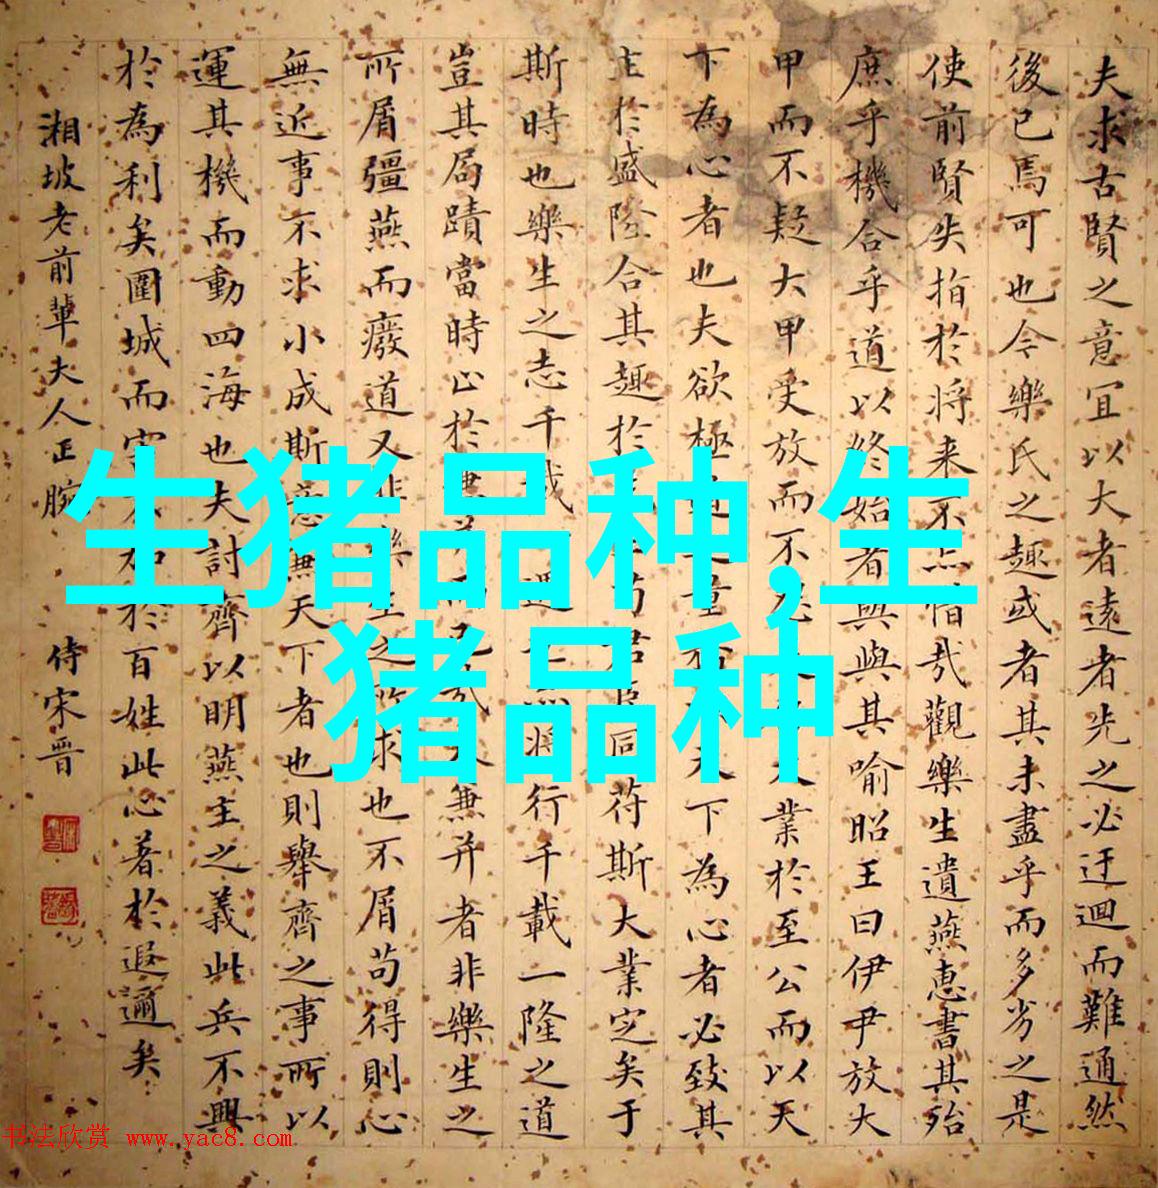 夫求古賢之意宜以大者遠者先之必迂迴而難通然
後已焉可也今樂氏之趣或者其未盡乎而多劣之是
使前賢失指於将来不亦惜哉觀樂生遺燕惠書其殆
庶乎機合乎道以終始者與與其喻昭王曰伊尹放大
甲而不疑大甲受放而不 業於至公而以天
下為心者也夫欲極 天下為心者必致其
主於盛隆合其趣於 苟君臣同苻斯大業定矣于
斯時也樂生之志千載一遇 将行千載一隆之道
豈其局蹟當時止於 兼并者非樂生之
所屑彊燕而廢道又非樂生之所求也不屑苟得則心
無近事不求小成斯意無天下者也則舉齊之事所以
運其機而動四海也夫討齊以明燕主之義此兵不興
於為利矣圍城而害不加於百姓此心著於遐邇矣
湘坡老前輩夫人正腕
侍宋晋
生猪品种,生
猪品种
书法欣赏 www.yac8.com